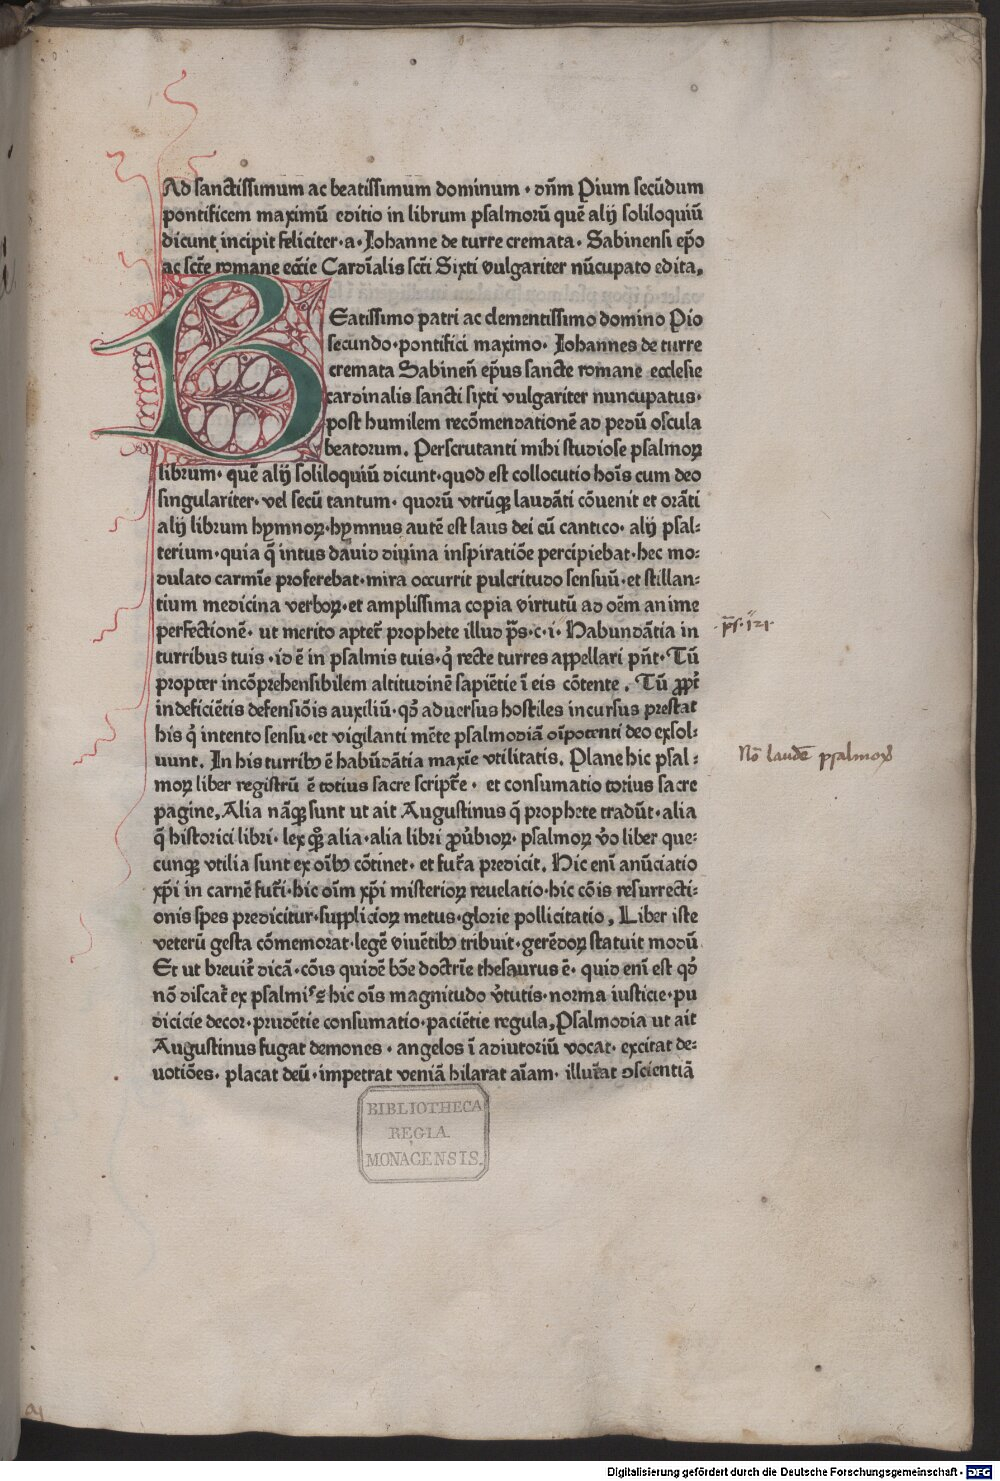 Ad sanctissimum ac beatissimum dominum · dn̄m Pium secūdum
pontificem maximū editio in librum psalmorū quē alij soliloquiū
dicunt incipit feliciter · a · Iohanne de turre cremata · Sabinensi ep̄o
ac sct̄e romane ecc̄ie Cardīalis sct̄i Sixti vulgariter nūcupato edita.
BEatissimo patri ac clementissimo domino Pio
secundo · pontifici maximo · Iohannes de turre
cremata Sabinen̄ ep̄us sancte romane ecclesie
cardinalis sancti sixti vulgariter nuncupatus ·
post humilem recōmendationē ad pedū oscula
beatorum. Perscrutanti mihi studiose psalmoꝝ
librum · quē alij soliloquiū dicunt · quod est collocutio hoīs cum deo
singulariter · vel secū tantum · quorū vtrūqꝫ laudāti cōuenit et orāti
alij librum hymnoꝝ · hymnus autē est laus dei cū cantico · alij psal⸗
terium · quia q̄ intus dauid diuina inspiratiōe percipiebat · hec mo⸗
dulato carmīe proferebat · mira occurrit pulcritudo sensuū · et stillan⸗
tium medicina verboꝝ · et amplissima copia virtutū ad oēm anime
perfectionē · ut merito aptet᷑ prophete illud p̄s · c · i · Habundātia in
turribus tuis · id ē in psalmis tuis · q̇ recte turres appellari pn̄t · Tū
propter incōprehensibilem altitudinē sapiētie ī eis cōtente. Tū ꝓpt᷑
indeficiētis defensiōis auxiliū · qd̾ aduersus hostiles incursus prestat
his q̇ intento sensu · et vigilanti mēte psalmodiā oīpotenti deo exsol⸗
uunt. In his turribꝫ ē habūdātia maxīe vtilitatis. Plane hic psal⸗
moꝝ liber registrū ē totius sacre script᷑e · et consumatio totius sacre
pagine. Alia nāqꝫ sunt ut ait Augustinus q̄ prophete tradūt · alia
q̄ historici libri · lex qꝫ alia · alia libri ꝓūbioꝝ · psalmoꝝ v̾o liber que⸗
cunqꝫ vtilia sunt ex oībꝫ cōtinet · et fut᷑a predicit. Hic enī anūciatio
xp̄i in carnē fut᷑i · hic oīm xp̄i misterioꝝ reuelatio · hic cōis resurrecti⸗
onis spes predicitur · supplicioꝝ metus · glorie pollicitatio. Liber iste
veterū gesta cōmemorat · legē viuētibꝫ tribuit · gerēdoꝝ statuit modū
Et ut breuit᷑ dicā · cōis quidē bōe doctrīe thesaurus ē · quid enī est qd̾
nō discat᷑ ex psalmis hic oīs magnitudo v̾tutis · norma iusticie · pu
dicicie decor · prudētie consumatio · paciētie regula. Psalmodia ut ait
Augustinus fugat demones · angelos ī adiutoriū vocat · excitat de⸗
uotiōes · placat deū · impetrat veniā hilarat aīam · illuīat ↄscientiā
p̄s · 121 ·
No͞ laudē psalmoꝝ
BIBLIOTHECA
REGIA
MONACENSIS.
aj
Digitalisierung gefördert durch die Deutsche Forschungsgemeinschaft - DFG